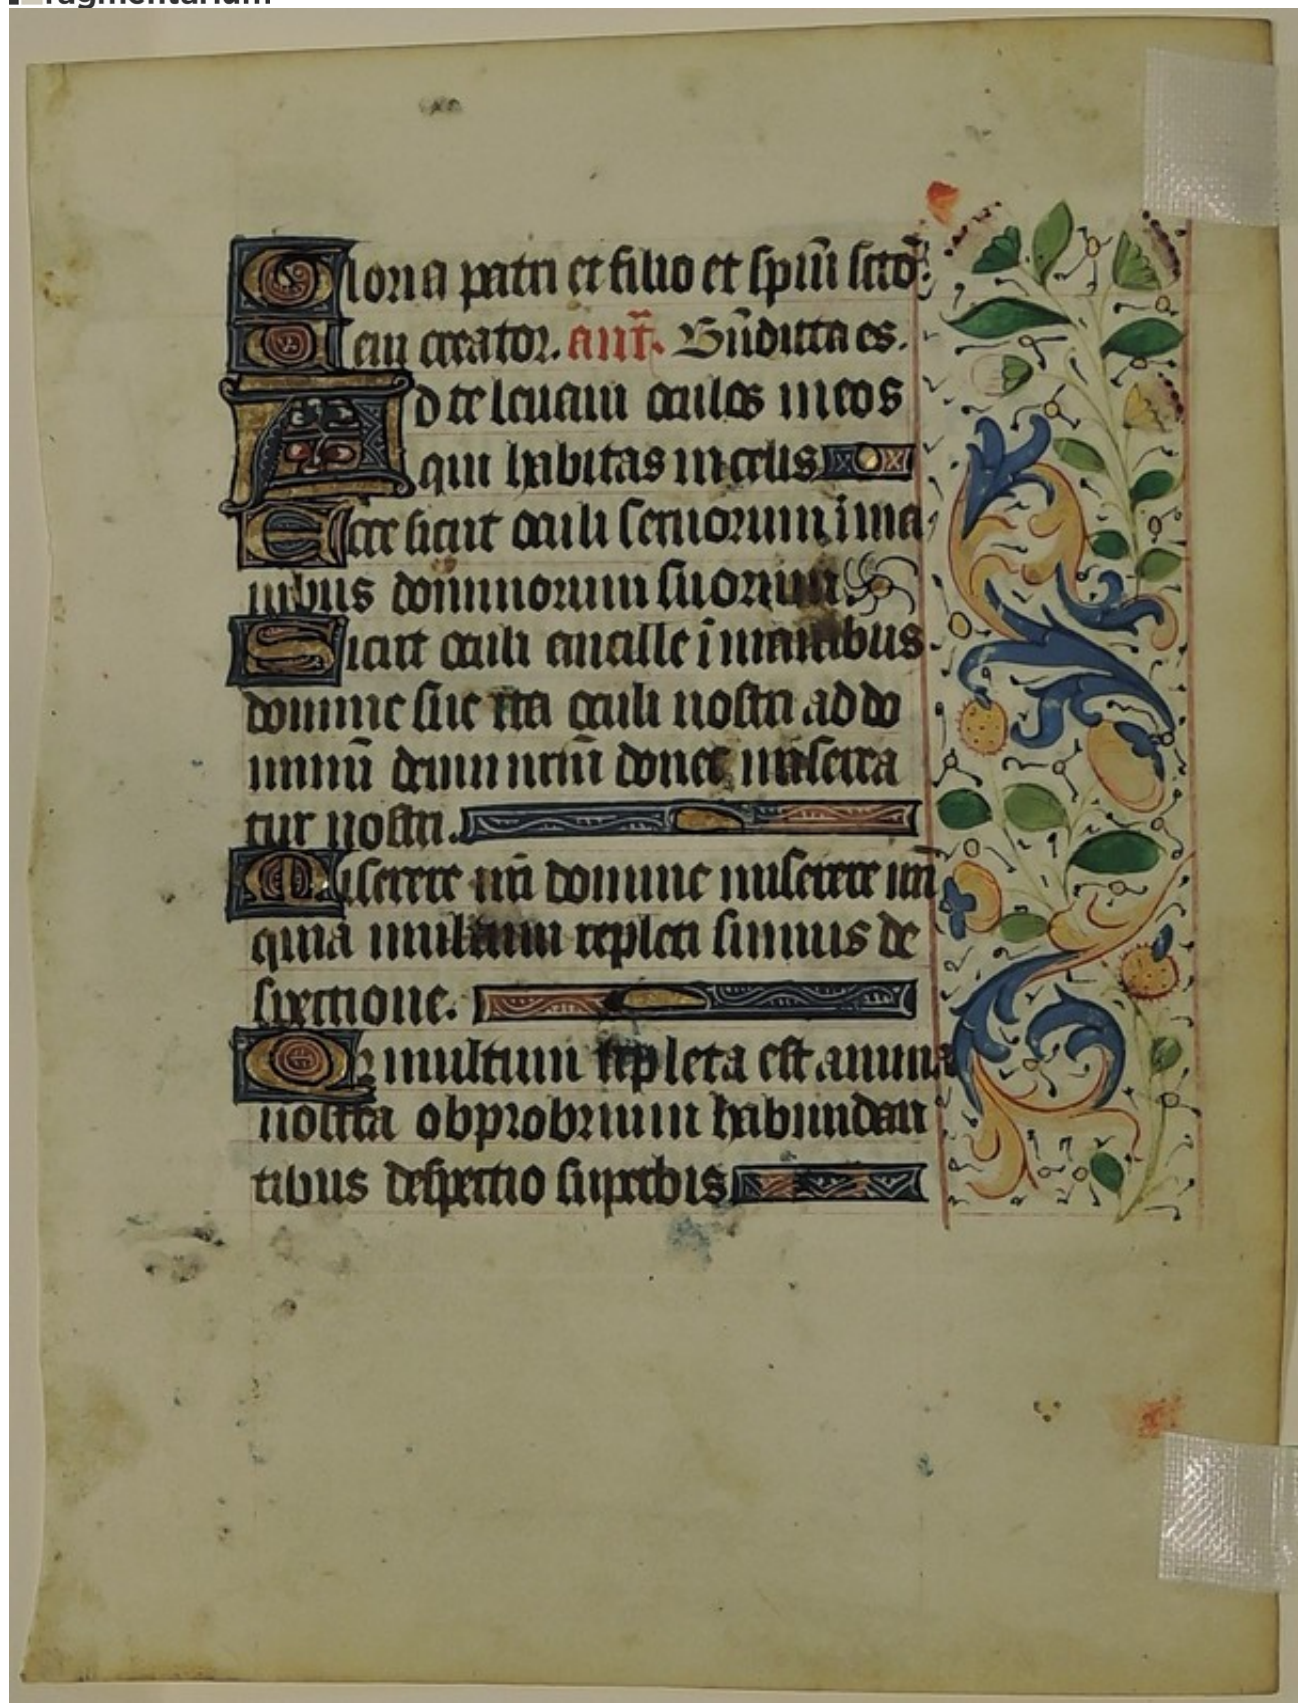 fragmentarium
Gloria patri et filio et spiu̅ scto̅.
Veni creator. an̅t. Bn̅dicta es.
Ad te leuaui oculos meos
qui habitas in celis
Ecce sicut oculi seruorum i ma
nibus dominorum suorum.
Sicut oculi ancille i manibus
domine sue ita oculi nostri ad do
minu̅ deum nr̅m donec miserea
tur nostri.
Miserere nr̅i domine miserere nr̅i
quia multum repleti sumus de
spectione.
Quia multum repleta est anima
nostra obprobrium habundan
tibus despectio superbis